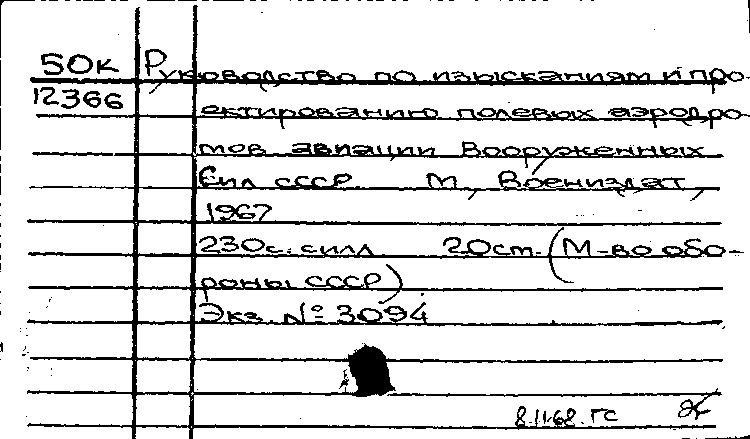 50к Руководство по изысканиям и про-
12366 ектированию полевых аэродро-
мов авиации Вооруженных
Сил СССР М, Воениздат,
1967
230с. силл. 20ст. (М-во обо-
роны СССР).
Экз. № 3094
8.11.68. ГС